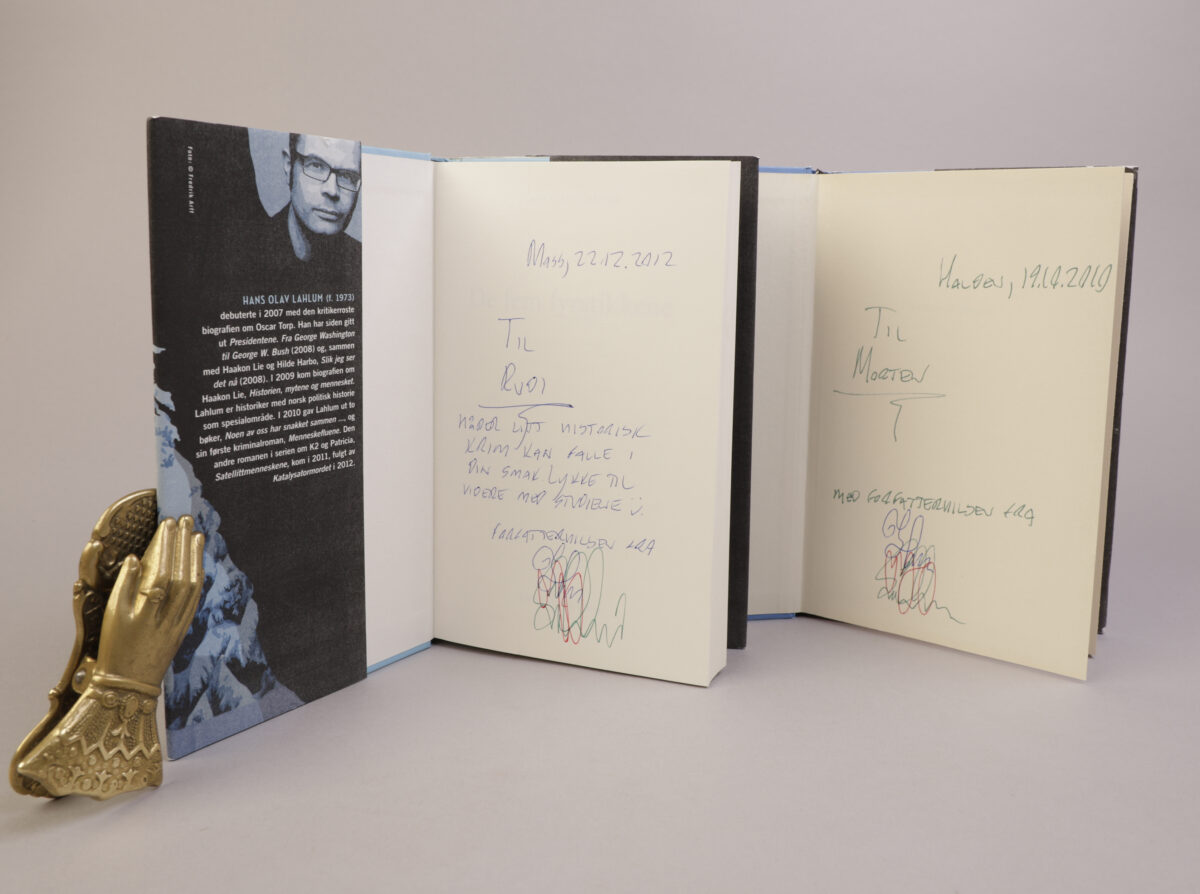 Foto: © Fredrik Arff
HANS OLAV LAHLUM (f. 1973)
debuterte i 2007 med den kritikerroste
biografien om Oscar Torp. Han har siden gitt
ut Presidentene. Fra George Washington
til George W. Bush (2008) og, sammen
med Haakon Lie og Hilde Harbo, Slik jeg ser
det nå (2008). I 2009 kom biografien om
Haakon Lie, Historien, mytene og mennesket.
Lahlum er historiker med norsk politisk historie
som spesialområde. I 2010 gav Lahlum ut to
bøker, Noen av oss har snakket sammen ..., og
sin første kriminalroman, Menneskefluene. Den
andre romanen i serien om K2 og Patricia,
Satellittmenneskene, kom i 2011, fulgt av
Katalysatormordet i 2012.
22.12.2012
De fem fyrstikkene
TIL
RUDI
HÅPER LITT HISTORISK
KRIM KAN FALLE I
DIN SMAK. LYKKE TIL
VIDERE MED STUDIENE
FORFATTERHILSEN FRA
HALDEN, 19.10.2010
TIL
MORTEN
MED FORFATTERHILSEN FRA